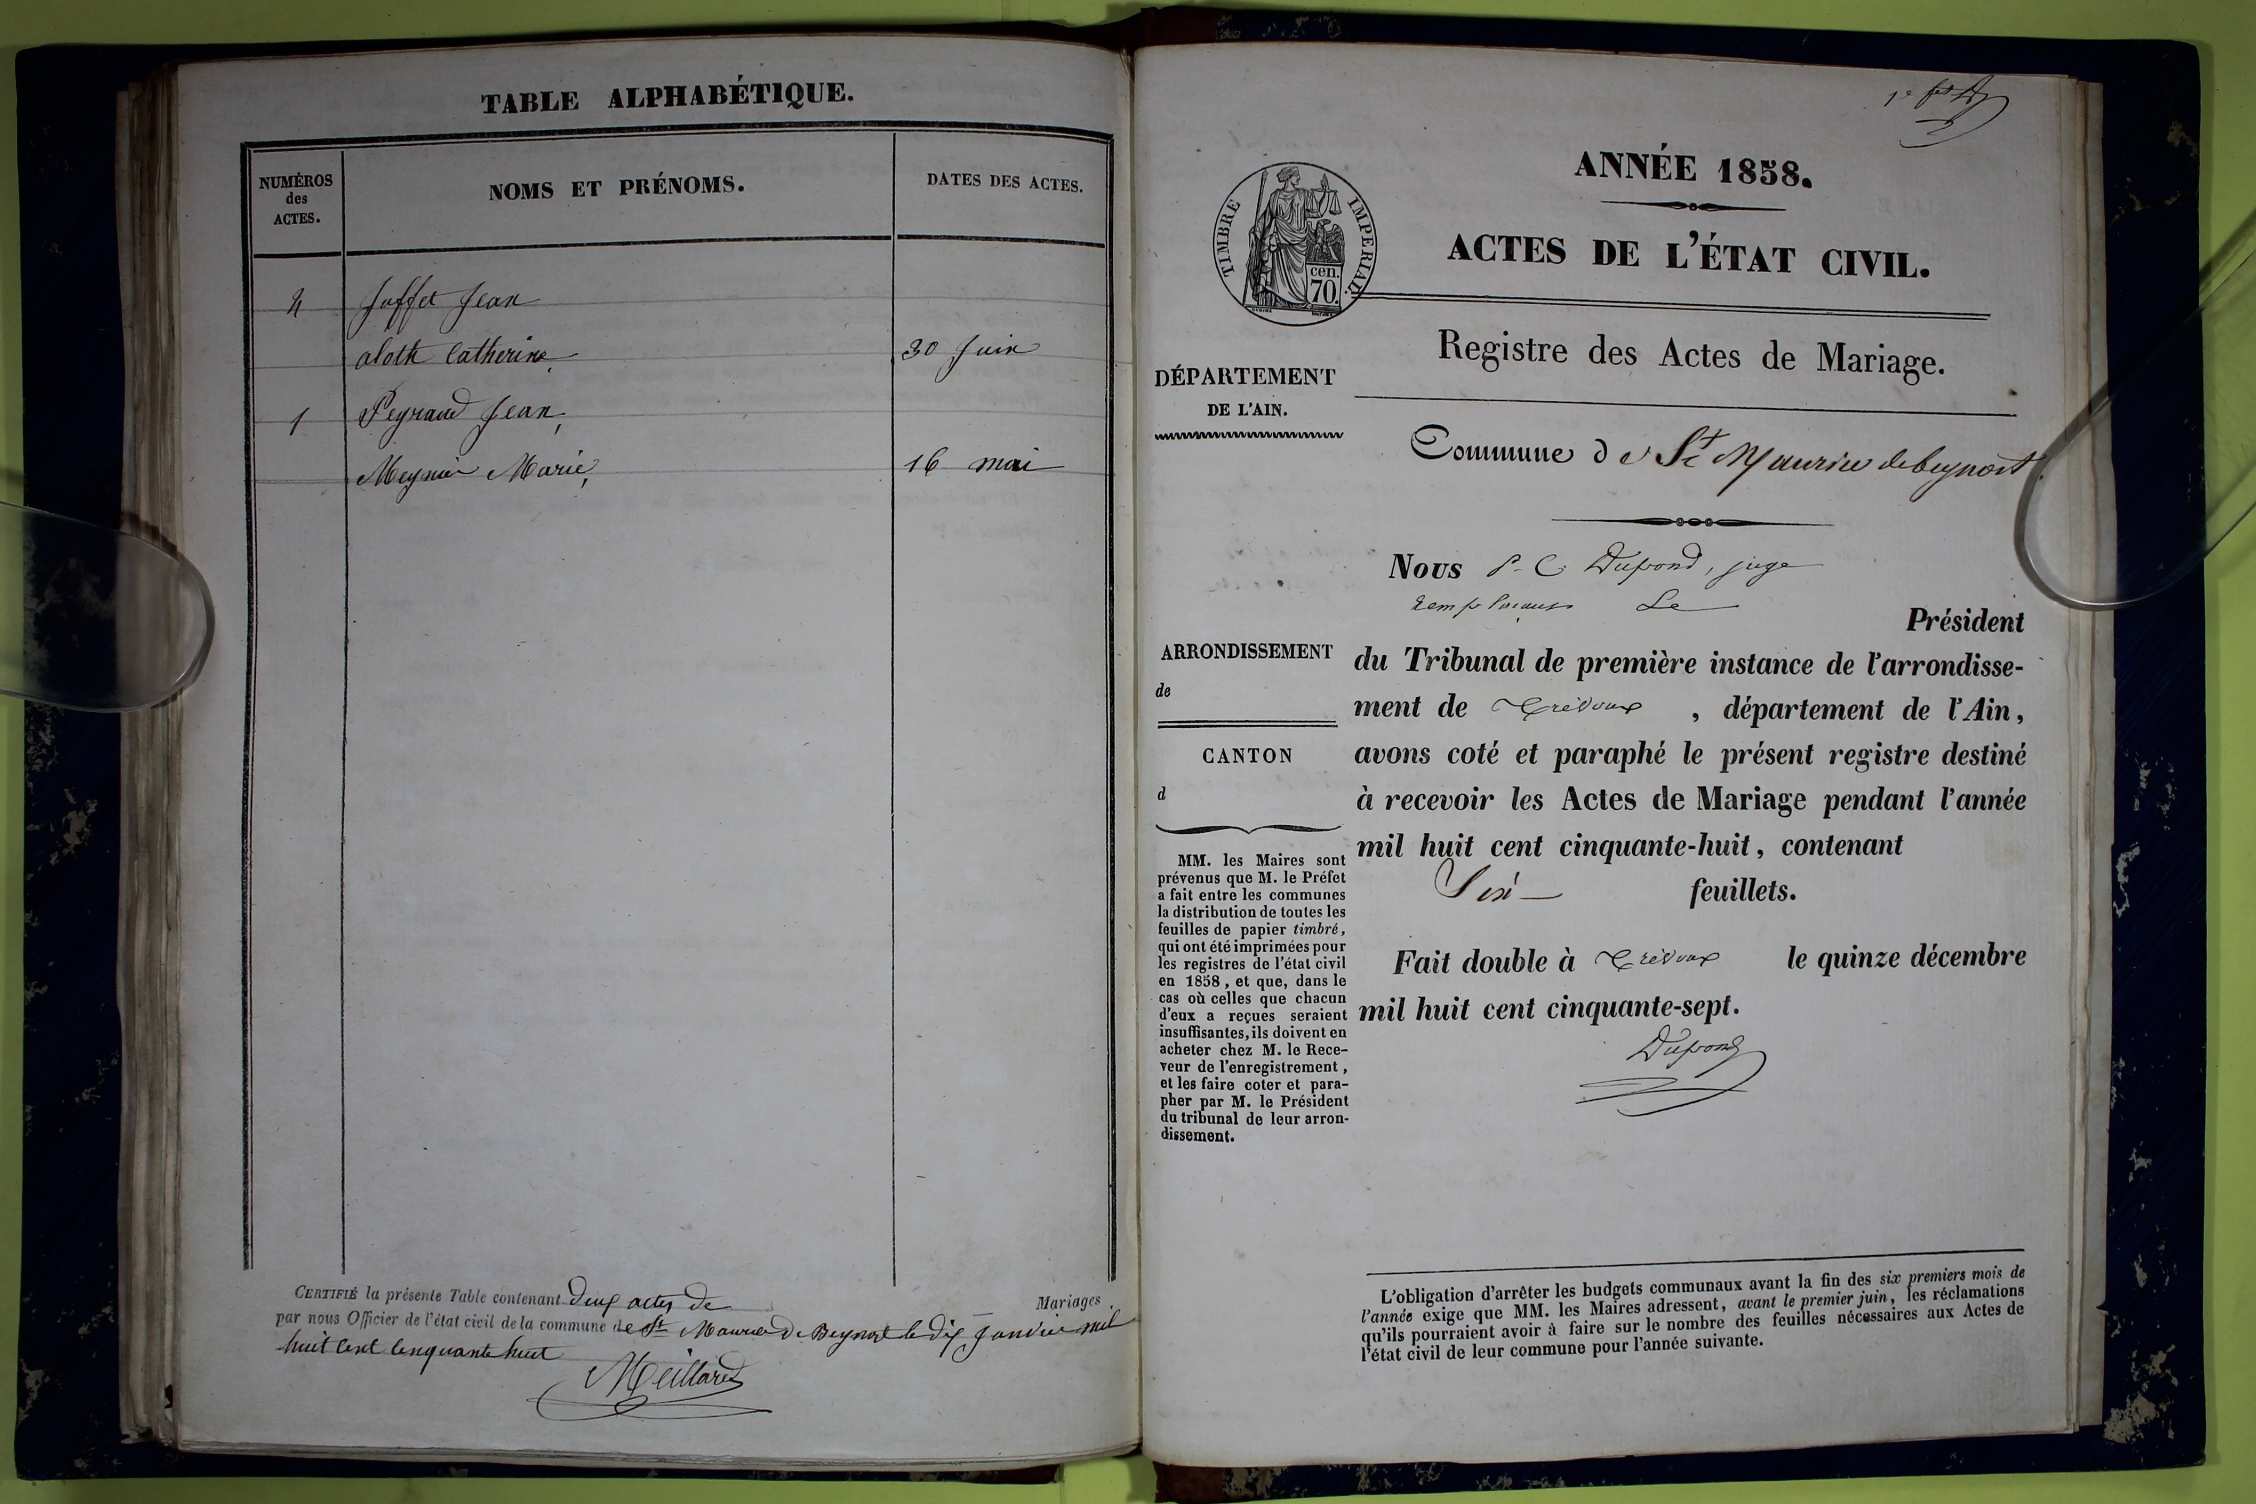 TABLE ALPHABÉTIQUE.
NUMÉROS
des
ACTES.
NOMS ET PRÉNOMS.
DATES DES ACTES.
2 Joffet Jean
aloth Catherine 30 Juin
1 Peyraud Jean,
Meynier Marie, 16 mai
CERTIFIÉ la présente Table contenant deux actes de Mariages.
par nous Officier de l'état civil de la commune de St Maurice De Beynost le dix Janvier mil
huit Cent Cinquante huit
Meillard
ANNÉE 1858.
TIMBRE IMPERIAL.
cen.
70.
ACTES DE L'ÉTAT CIVIL.
Registre des Actes de Mariage.
DÉPARTEMENT
DE L'AIN.
Commune de St Maurice de beynost
Nous P. C. Dupond, juge
remplaçant Le
Président
ARRONDISSEMENT
de
CANTON
d
du Tribunal de première instance de l'arrondisse-
ment de Trévoux, département de l'Ain,
avons coté et paraphé le présent registre destiné
à recevoir les Actes de Mariage pendant l'année
mil huit cent cinquante-huit, contenant
Six feuillets.
Fait double à Trévoux le quinze décembre
mil huit cent cinquante-sept.
Dupond
MM. les Maires sont
prévenus que M. le Préfet
a fait entre les communes
la distribution de toutes les
feuilles de papier timbré,
qui ont été imprimées pour
les registres de l'état civil
en 1858, et que, dans le
cas où celles que chacun
d'eux a reçues seraient
insuffisantes, ils doivent en
acheter chez M. le Rece-
veur de l'enregistrement,
et les faire coter et para-
pher par M. le Président
du tribunal de leur arron-
dissement.
L'obligation d'arrêter les budgets communaux avant la fin des six premiers mois de
l'année exige que MM. les Maires adressent, avant le premier juin, les réclamations
qu'ils pourraient avoir à faire sur le nombre des feuilles nécessaires aux Actes de
l'état civil de leur commune pour l'année suivante.